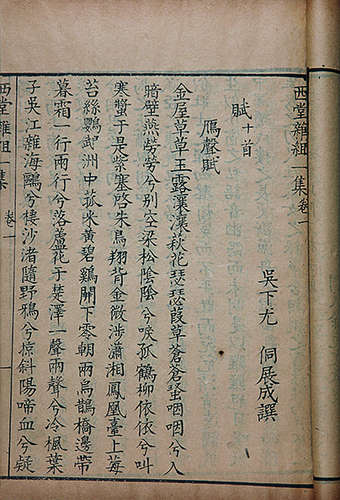 西堂雜組一集卷一
吳下尤 侗展成譔
賦十首
鴈聲賦
金屋草草玉露瀼瀼萩花瑟瑟葭草蒼蒼蛩咽咽兮入
暗壁燕勞勞兮別空梁松陰陰兮唳孤鶴柳依依兮叫
寒螿于是紫塞啓朱鳥翔背金微涉瀟湘鳳凰臺上莓
苔綠鸚鵡洲中菰米黄碧雞關下零朝雨烏鵲橋邊帶
暮霜一行兩行兮落蘆花于楚澤一聲兩聲兮冷楓葉
于吳江雜海鷗兮棲沙渚隨野鴉兮惊斜陽啼血兮疑
西堂雜組一集 卷一